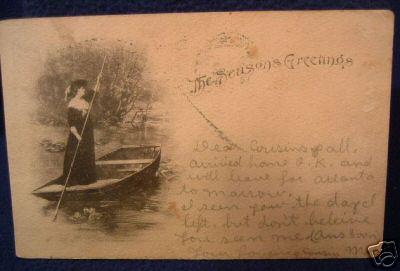 The Seasons Greetings
Dear Cousins & all,
arrived home O.K. and
will leave for Atlanta
to marrow.
I seen you the day I
left, but don't beleive
you seen me (Ans soon
Your
ebY